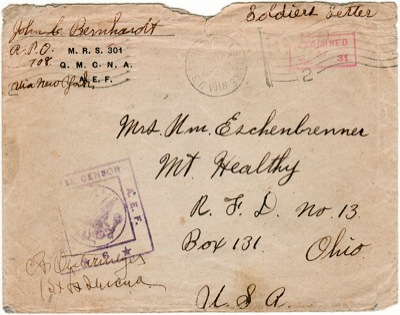 John C Bernhardt
Soldiers Letter
A.P.O. M. R. S. 301
708. Q. M. C. N. A.
via New York. A. E. F.
1918
2
31
Mrs. Wm. Eschenbrenner
Mt Healthy
R. F. D. No. 13.
Box 131. Ohio
U. S. A.
CENSOR
A.E.F.